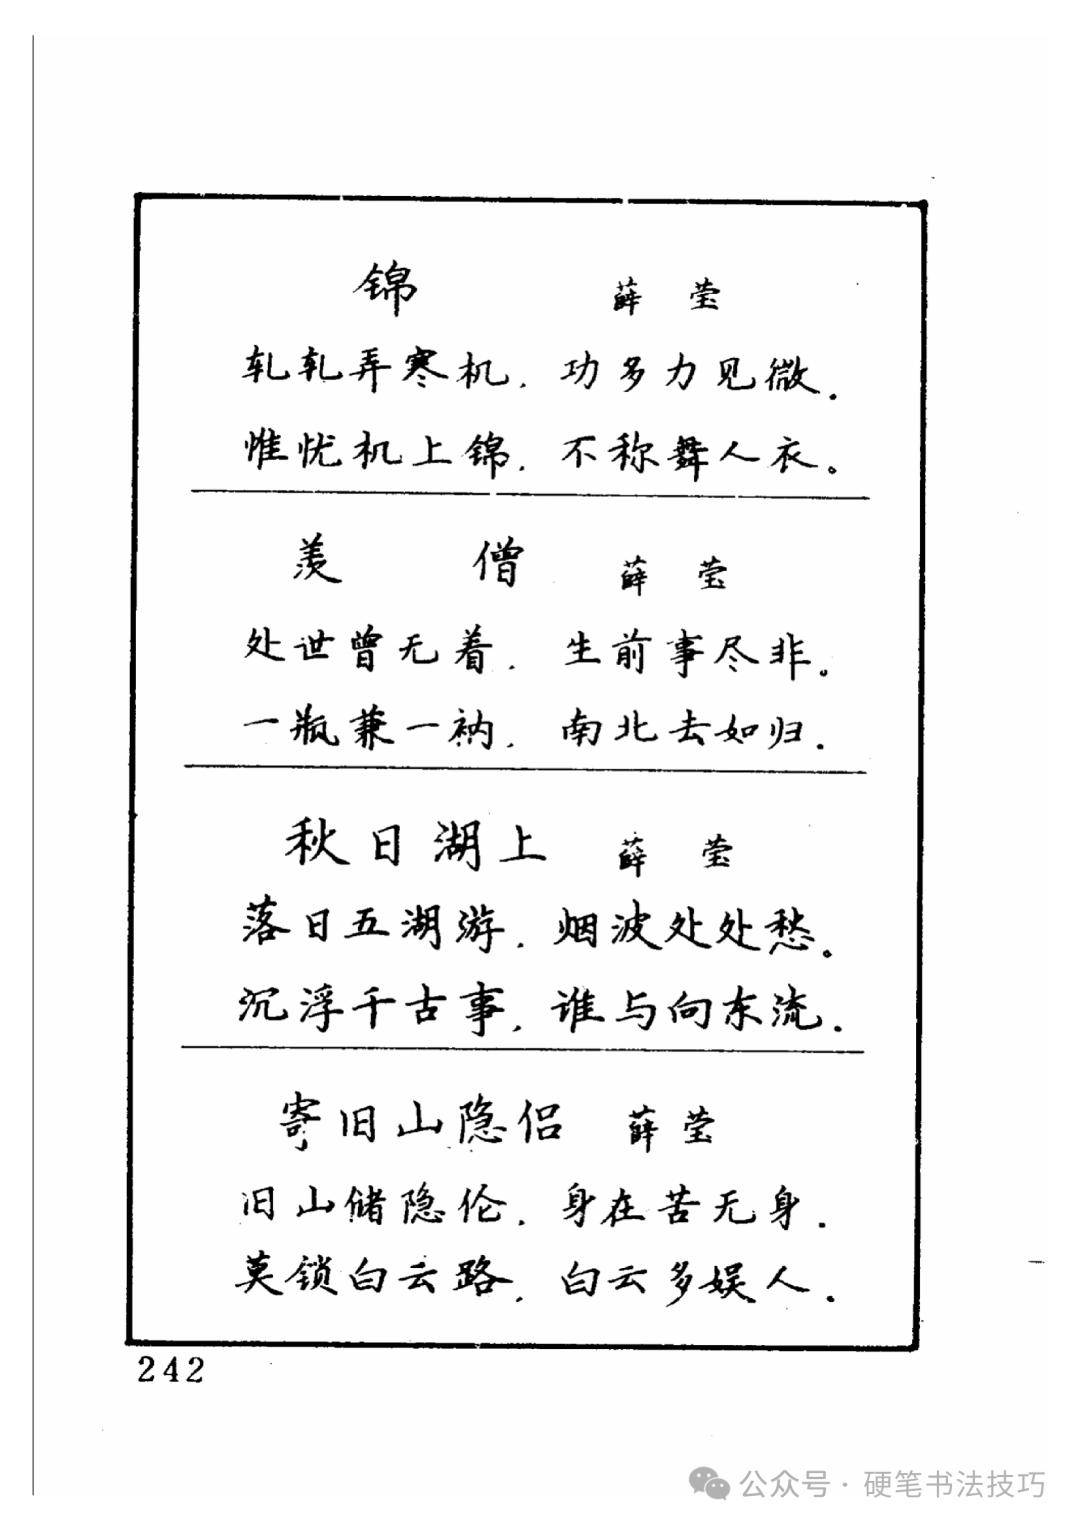 锦 薛莹
轧轧弄寒机，功多力见微．
惟忧机上锦，不称舞人衣。
羡僧 薛莹
处世曾无着，生前事尽非。
一瓶兼一衲，南北去如归．
秋日湖上 薛莹
落日五湖游，烟波处处愁。
沉浮千古事，谁与向东流．
寄旧山隐侣 薛莹
旧山储隐伦，身在苦无身．
莫锁白云路，白云多娱人．
242
公众号·硬笔书法技巧